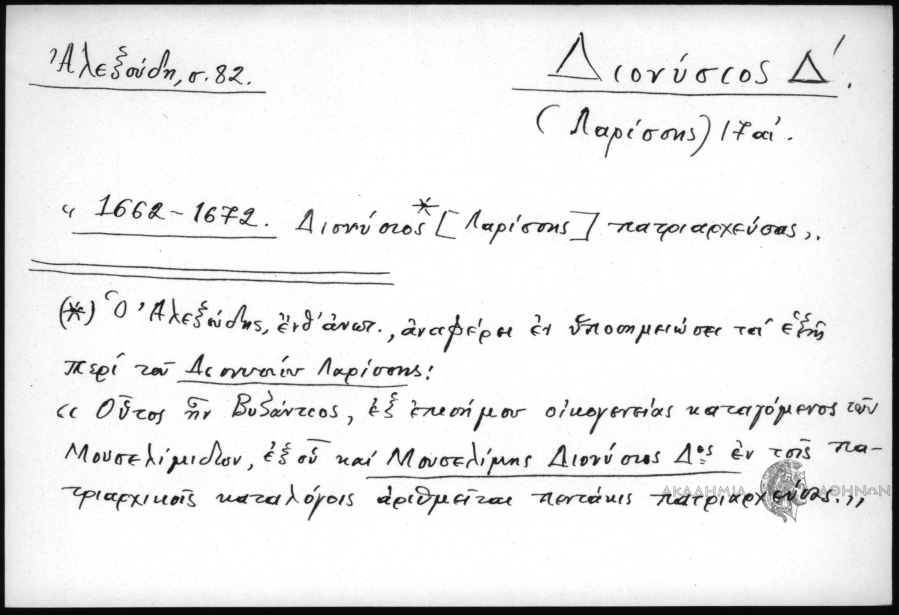 Ἀλεξούδη, σ. 82.
Διονύσιος Δ΄.
(Λαρίσσης) 17 αἰ.
“ 1662 – 1672. Διονύσιος* [Λαρίσσης] πατριαρχεύσας,,
(*) Ὁ Ἀλεξούδης, ἔνθ᾽ ἀνωτ., ἀναφέρει ἐν ὑποσημειώσει τά ἑξῆς
περί τοῦ Διονυσίου Λαρίσσης:
“ Οὗτος ἦν Βυζάντιος, ἐξ ἐπισήμου οἰκογενείας καταγόμενος τῶν
Μουσελίμιδων, ἐξ οὗ καί Μουσελίμης Διονύσιος Δος ἐν τοῖς πα-
τριαρχικοῖς καταλόγοις ἀριθμεῖται πεντάκις πατριαρχεύσας.,,
ΑΚΑΔΗΜΙΑ ΑΘΗΝΩΝ